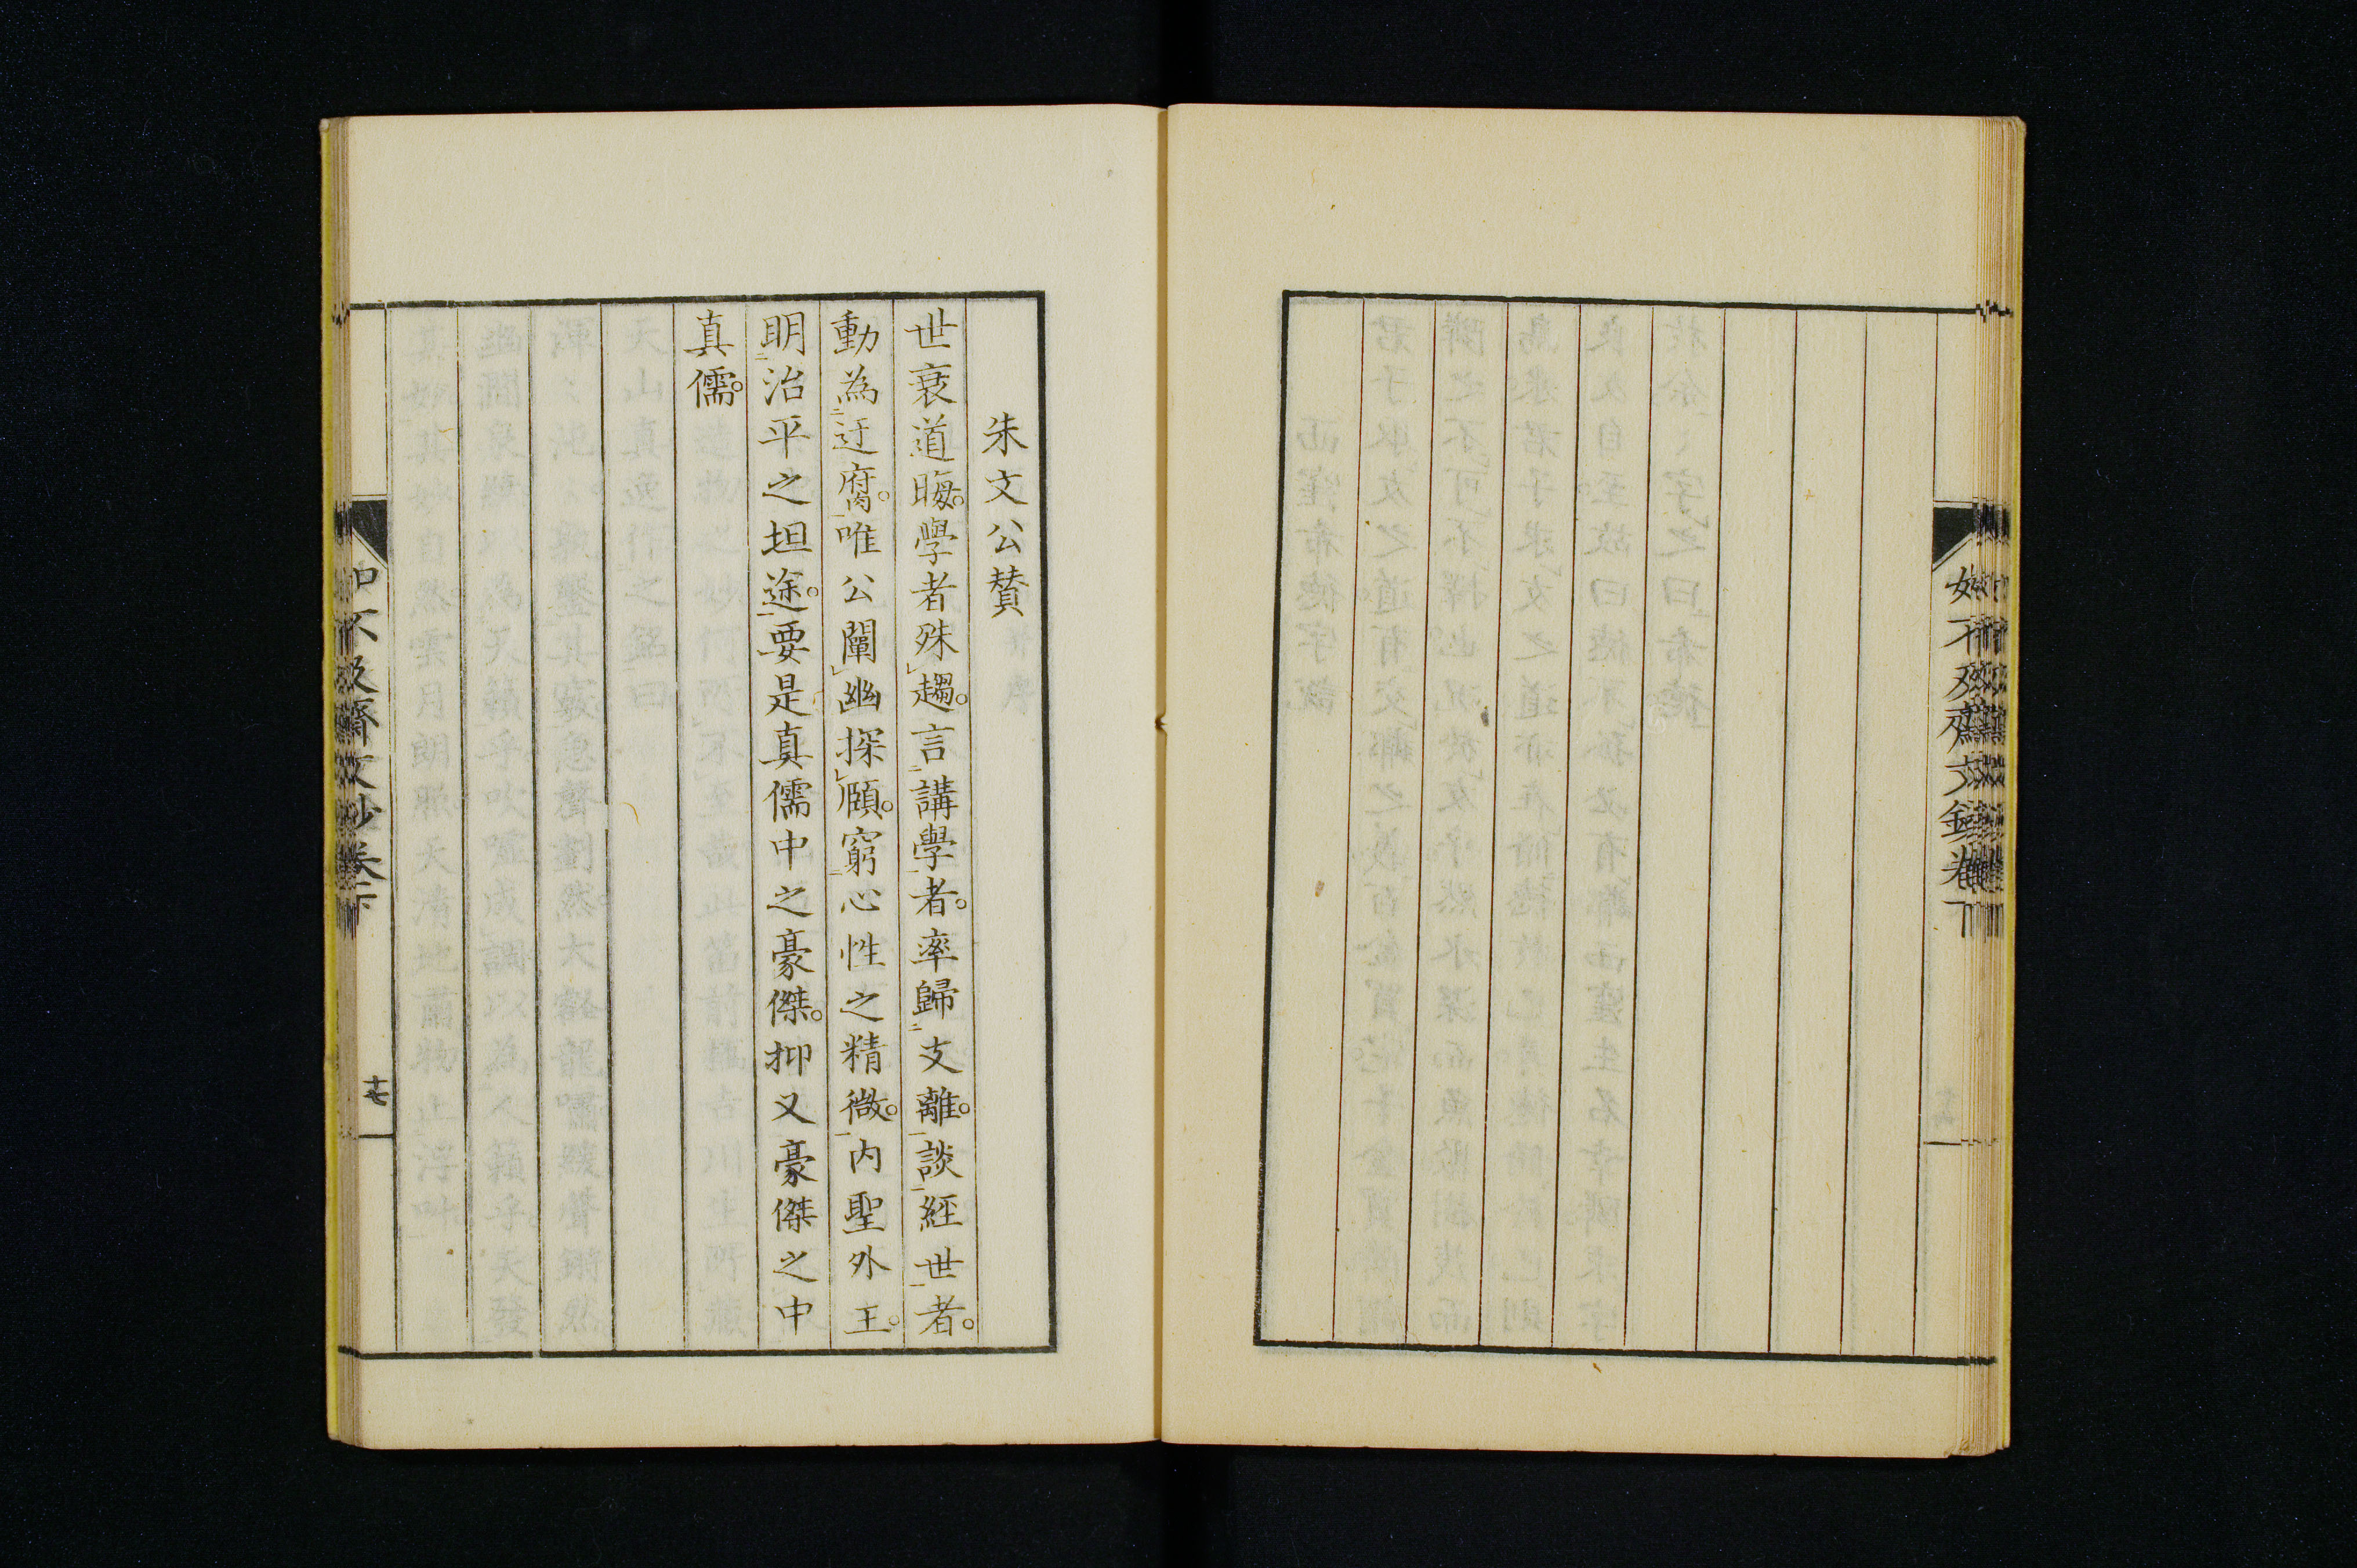 朱文公賛
世衰道晦。學者殊趨。言講學者。率歸支離。談經世者。
動為迂腐。唯公闡幽探賾。窮心性之精微。内聖外王。
明治平之坦途。要是真儒中之豪傑。抑又豪傑之中
真儒。
如不及齋文鈔卷下
十七